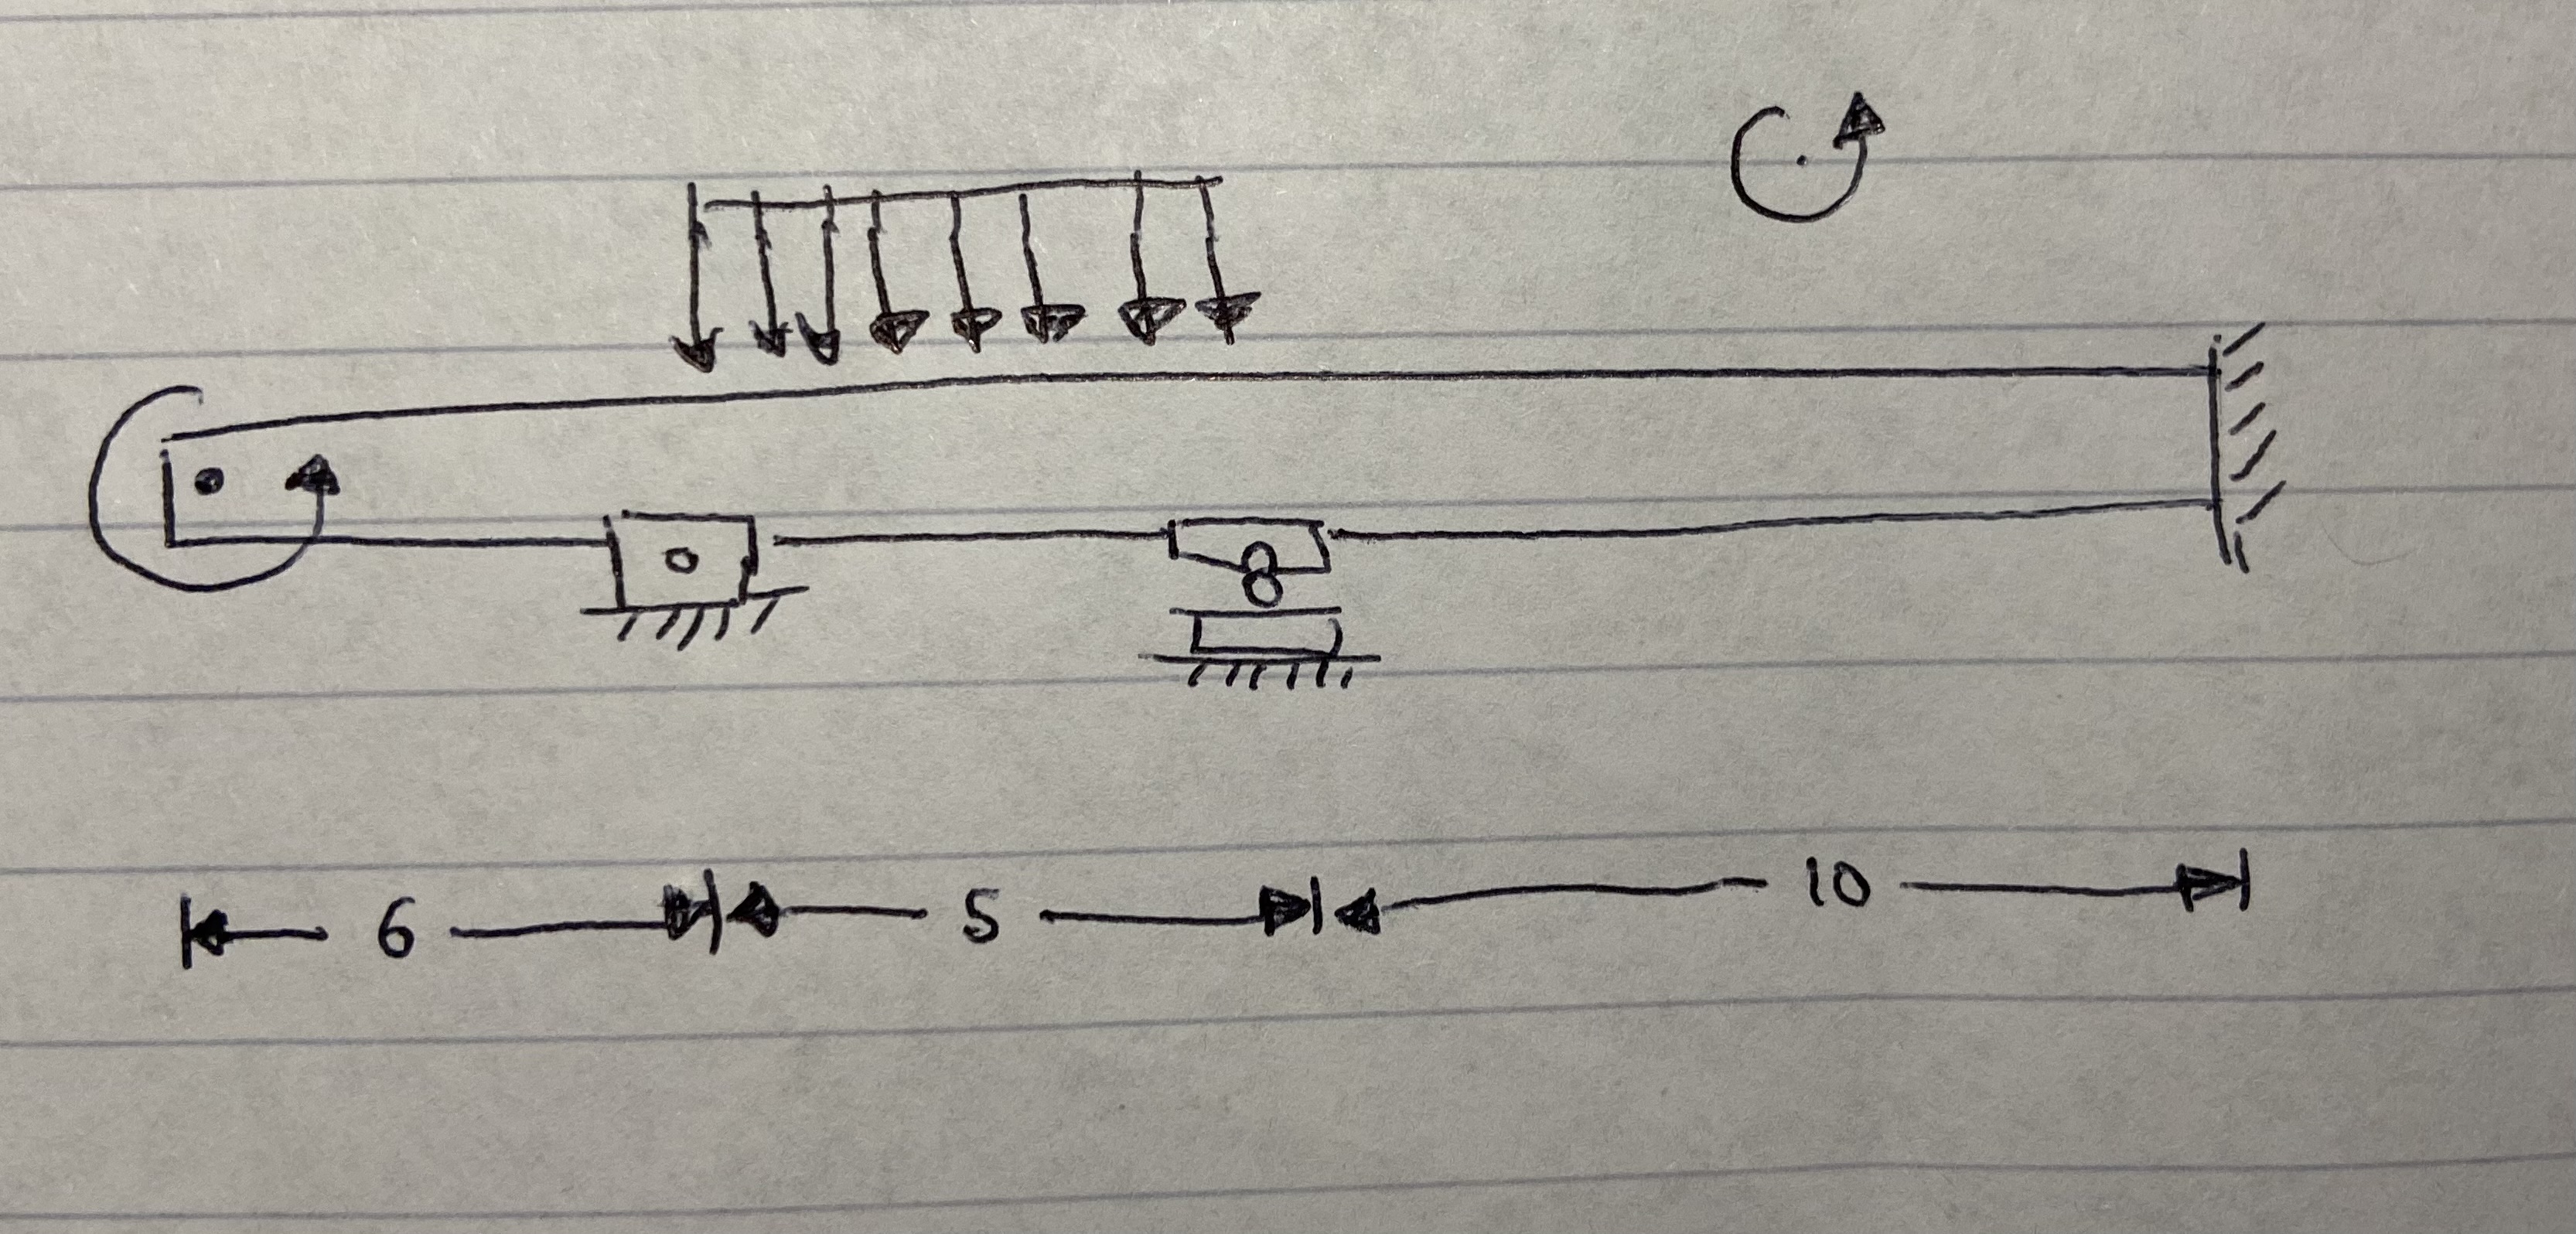 6 5 10